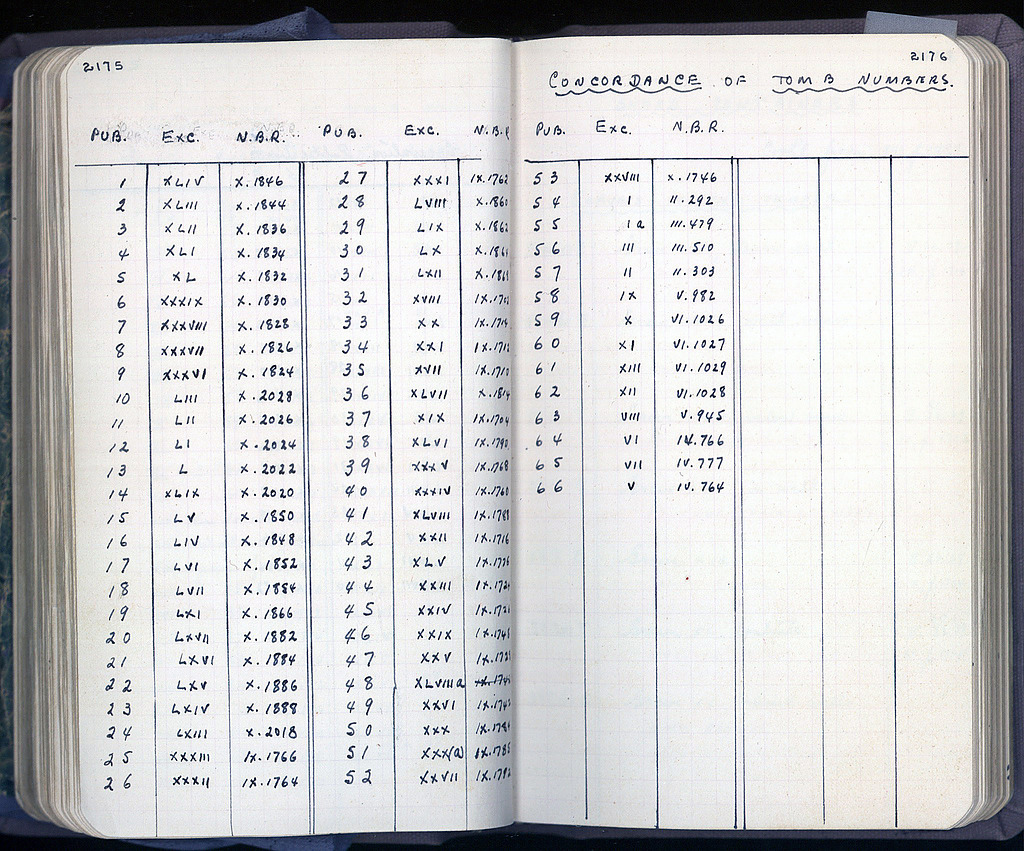 2175
PUB. EXC. N.B.R. PUB. EXC. N.B.R
1 XLIV X.1846 27 XXXI IX.1762
2 XLIII X.1844 28 LVIII X.1860
3 XLII X.1836 29 LIX X.1862
4 XLI X.1834 30 LX
5 XL X.1832 31 LXII
6 XXXIX X.1830 32 XVIII
7 XXXVIII X.1828 33 XX
8 XXXVII X.1826 34 XXI IX.1712
9 XXXVI X.1824 35 XVII
10 LIII X.2028 36 XLVII
11 LII X.2026 37 XIX IX.1704
12 LI X.2024 38 XLVI IX.1790
13 L X.2022 39 XXXV IX.1768
14 XLIX X.2020 40 XXXIV IX.1760
15 LV X.1850 41 XLVIII IX.1788
16 LIV X.1848 42 XXII IX.1716
17 LVI X.1852 43 XLV
18 LVII X.1854 44 XXIII
19 LXI X.1866 45 XXIV
20 LXVII X.1882 46 XXIX
21 LXVI X.1884 47 XXV
22 LXV X.1886 48 XLVIIIa
23 LXIV X.1888 49 XXVI
24 LXIII X.2018 50 XXX
25 XXXIII IX.1766 51 XXX(a)
26 XXXII IX.1764 52 XXVII
2176
CONCORDANCE OF TOMB NUMBERS.
PUB. EXC. N.B.R.
53 XXVIII X.1746
54 I II.292
55 Ia III.479
56 III III.510
57 II II.303
58 IX V.982
59 X VI.1026
60 XI VI.1027
61 XIII VI.1029
62 XII VI.1028
63 VIII V.945
64 VI IV.766
65 VII IV.777
66 V IV.764